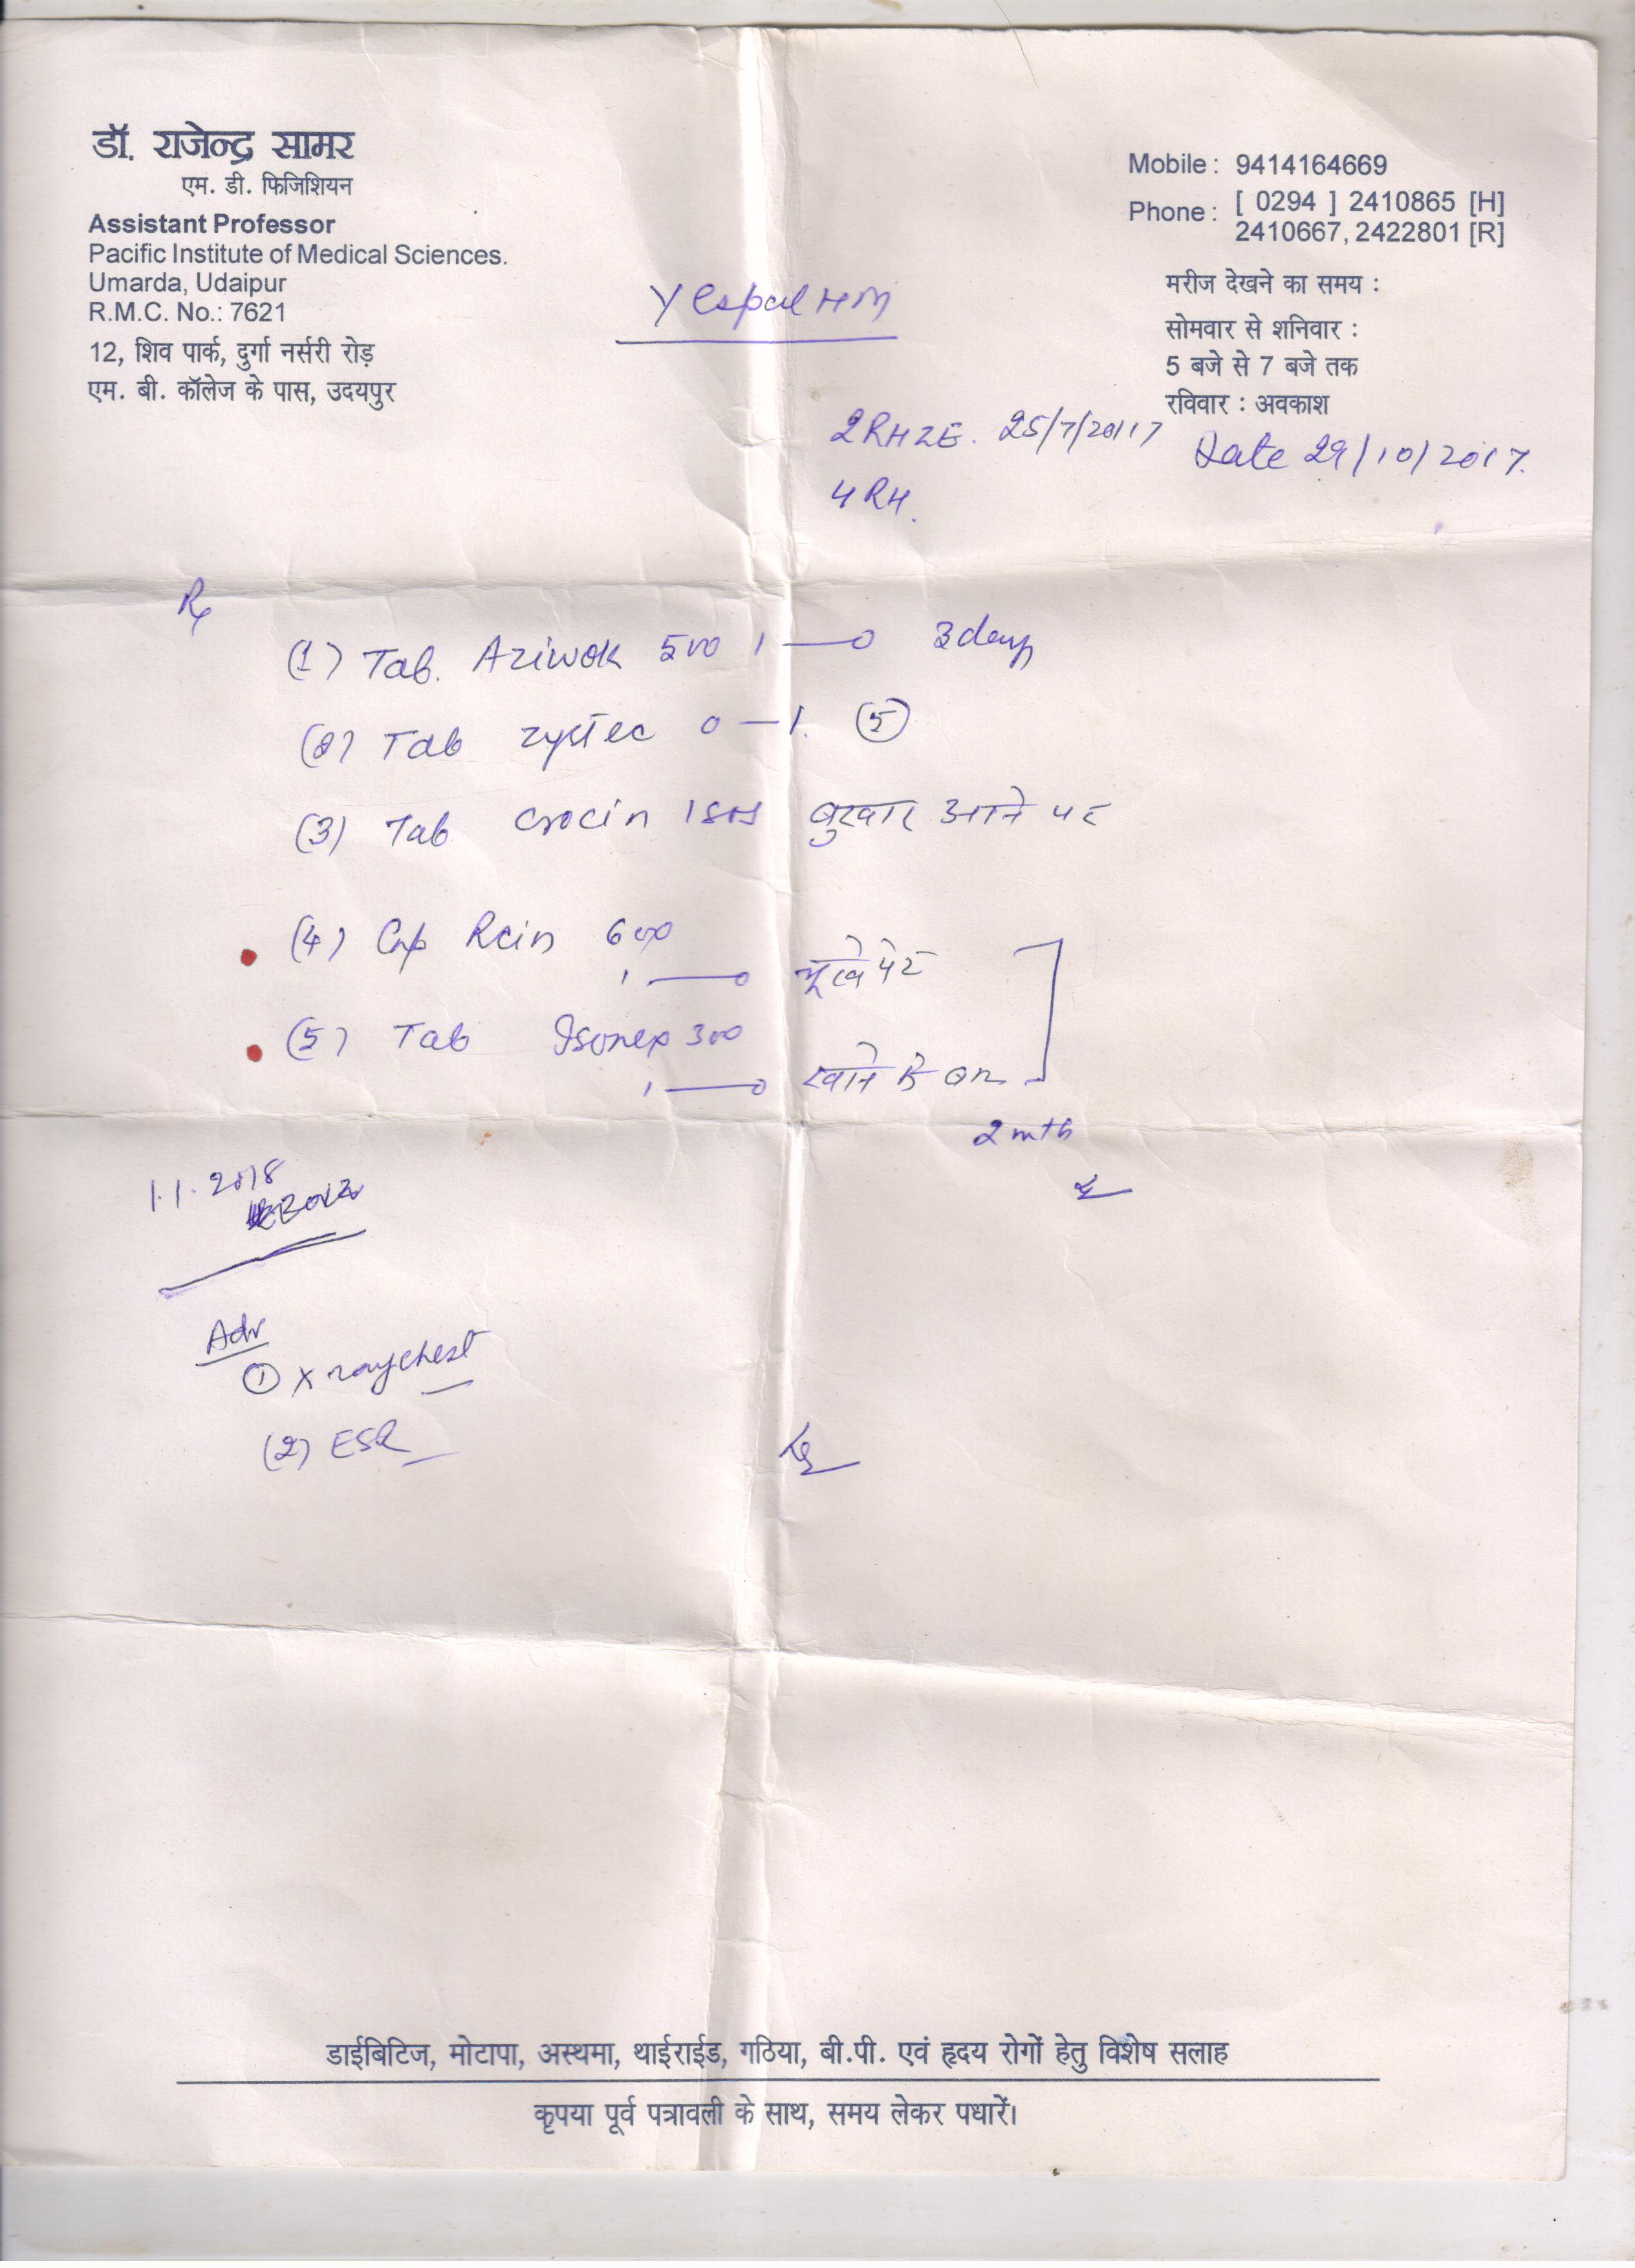 डॉ. राजेन्द्र सामर
एम. डी. फिजिशियन
Assistant Professor
Pacific Institute of Medical Sciences.
Umarda, Udaipur
R.M.C. No.: 7621
12, शिव पार्क, दुर्गा नर्सरी रोड़
एम. बी. कॉलेज के पास, उदयपुर
Mobile : 9414164669
Phone : [ 0294 ] 2410865 [H]
2410667, 2422801 [R]
मरीज देखने का समय :
सोमवार से शनिवार :
5 बजे से 7 बजे तक
रविवार : अवकाश
2RHZE. 25/7/2017
Date 29/10/2017.
4 RH.
Rx
(1) Tab. Aziwok 500 1 — 0 3 days
(2) Tab Zyrtec 0 — 1. (5)
(3) Tab Crocin 1 SOS बुखार आने पर
(4) Cap Rcin 600
1 — 0 भूखे पेट
(5) Tab Isonex 300
1 — 0 खाने के बाद
2 mth
1.1.2018
Adv
(1) X ray chest
(2) ESR
डाईबिटिज, मोटापा, अस्थमा, थाईराईड, गठिया, बी.पी. एवं हृदय रोगों हेतु विशेष सलाह
कृपया पूर्व पत्रावली के साथ, समय लेकर पधारें।